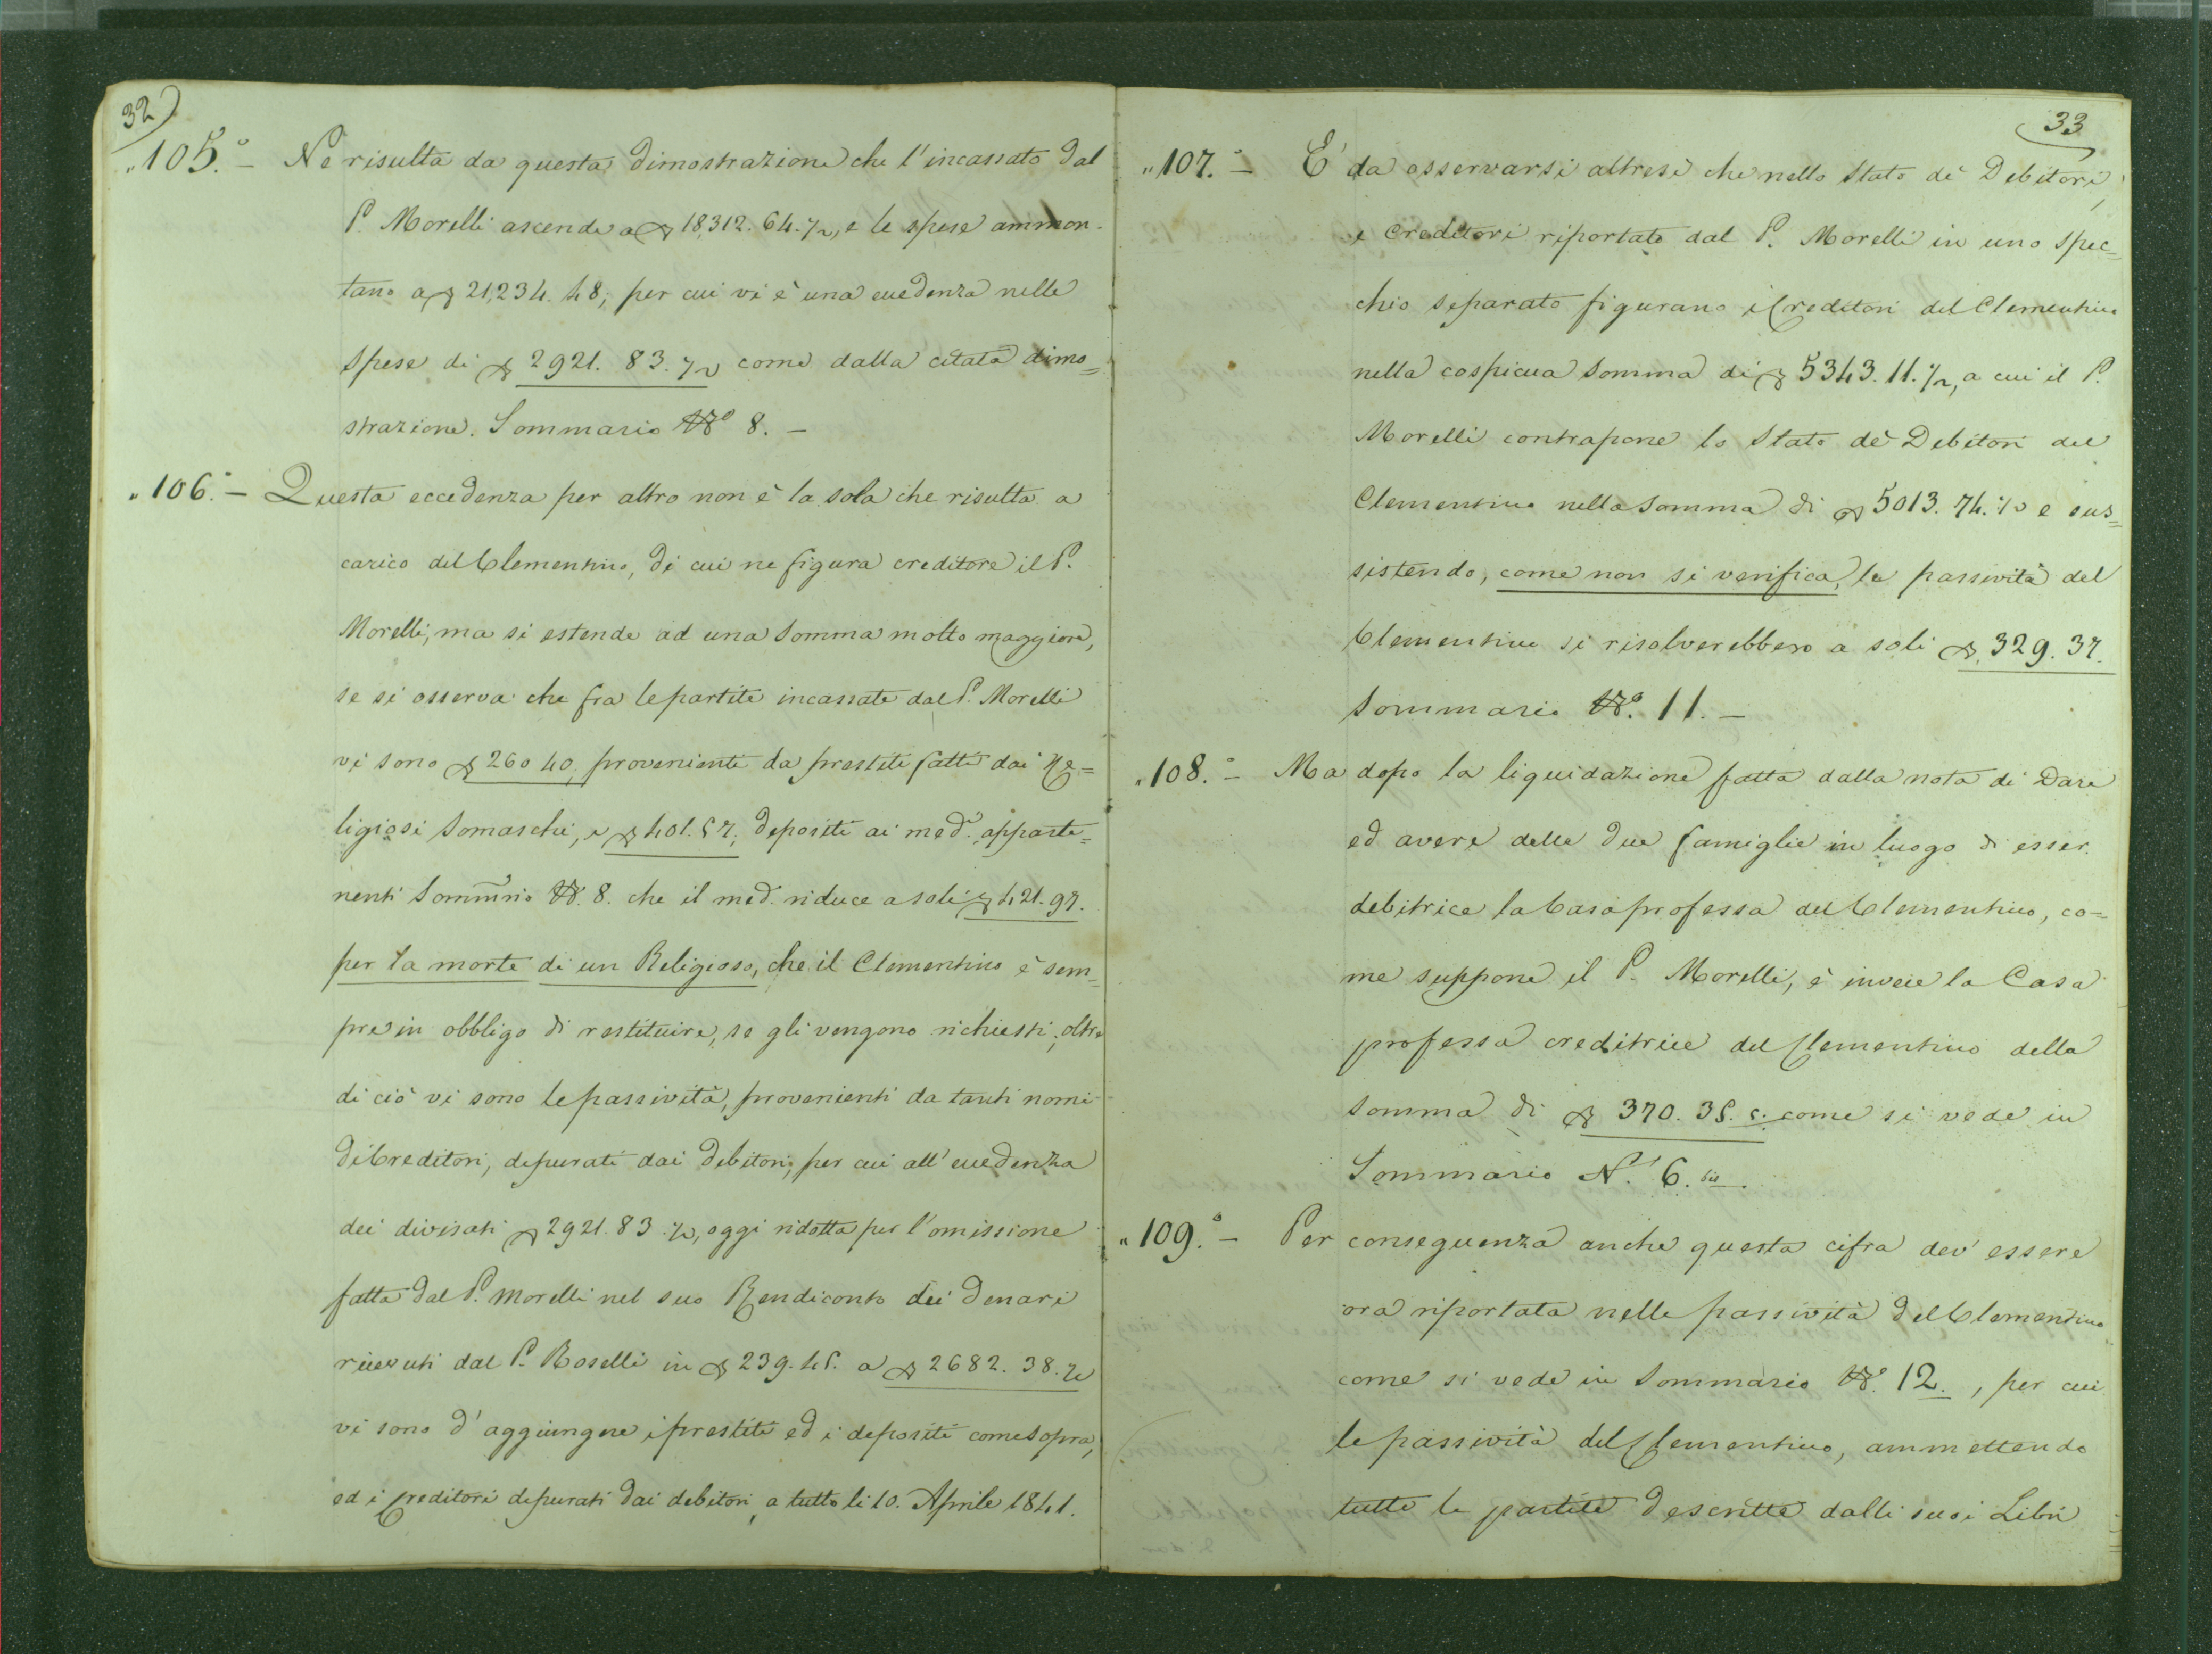 32
„105.° – Ne risulta da questa dimostrazione che l'incassato dal
P. Morelli ascende a 18,312. 64. ½, e le spese ammon-
tano a 21,234. 48; per cui vi è una eccedenza nelle
spese di 2921. 83. ½ come dalla citata dimo=
strazione. Sommario N° 8. –
„106.° – Questa eccedenza per altro non è la sola che risulta a
carico del Clementino, di cui ne figura creditore il P.
Morelli, ma si estende ad una somma molto maggiore,
se si osserva che fra le partite incassate dal P. Morelli
vi sono 260 40, provenienti da prestiti fatti dai Re=
ligiosi Somaschi, e 401. 57; depositi ai med.i apparte=
nenti Sommrio N. 8. che il med. riduce a soli 421. 97.
per la morte di un Religioso, che il Clementino è sem=
pre in obbligo di restituire, se gli vengono richiesti; oltre
di ciò vi sono le passività, provenienti da tanti nomi
di Creditori, depurati dai debitori; per cui all'eccedenza
dei divisati 2921. 83 ½, oggi ridotta per l'omissione
fatta dal P. Morelli nel suo Rendiconto dei denari
ricevuti dal P. Roselli in 239. 45. a 2682. 38. ½
vi sono d'aggiungere i prestiti ed i depositi come sopra,
ed i Creditori depurati dai debitori, a tutto li 10. Aprile 1841.
33
„107.° – E' da osservarsi altresì che nello Stato de' Debitori,
e Creditori riportato dal P. Morelli in uno spec=
chio separato figurano i Creditori del Clementino
nella cospicua somma di 5343. 11. ½, a cui il P.
Morelli contrapone lo Stato de' Debitori del
Clementino nella somma di 5013. 74. ½ e sus=
sistendo, come non si verifica, le passività del
Clementino si risolverebbero a soli 329. 37.
Sommario N°. 11. –
„108.° – Ma dopo la liquidazione fatta dalla nota di Dare
ed avere delle due famiglie in luogo di esser
debitrice la Casa professa del Clementino, co=
me suppone il P. Morelli, è invece la Casa
professa creditrice del Clementino della
somma di 370. 35. 5. come si vede in
Sommario N.° 6. bis.
„109.° – Per conseguenza anche questa cifra dev'essere
ora riportata nelle passività del Clementino
come si vede in Sommario N°. 12. , per cui
le passività del Clementino, ammettendo
tutte le partite descritte dalli suoi Libri